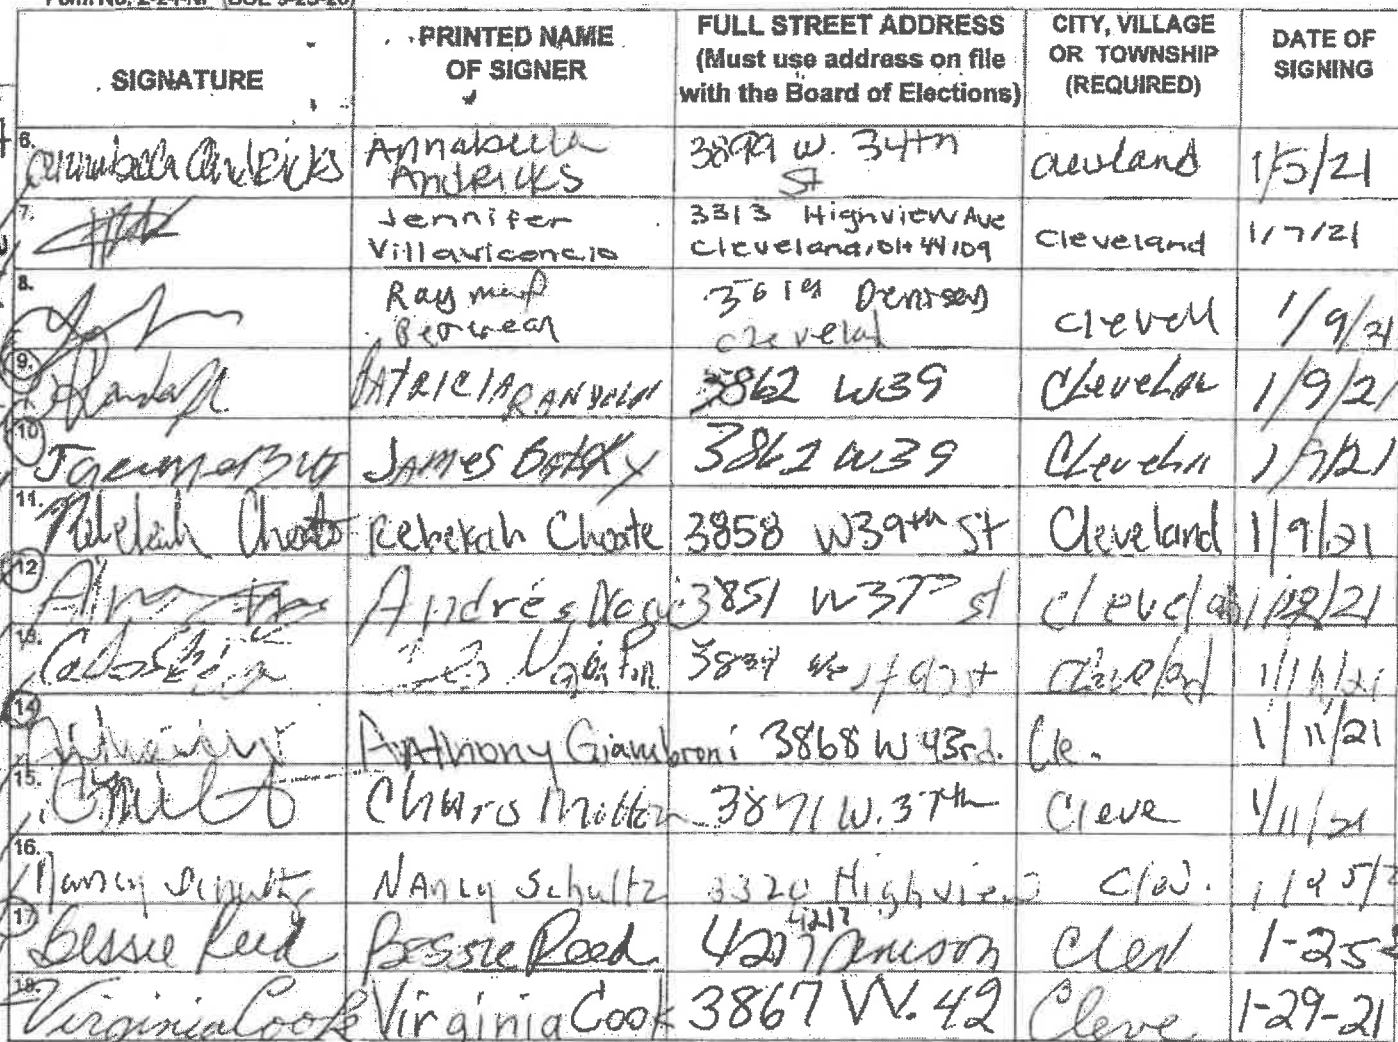 Form No. 2-24-NP (SOE 9-23-20)
SIGNATURE
PRINTED NAME
OF SIGNER
FULL STREET ADDRESS
(Must use address on file
with the Board of Elections)
CITY, VILLAGE
OR TOWNSHIP
(REQUIRED)
DATE OF
SIGNING
6.
Annabella Andricks
Annabella
ANDRICKS
3899 W. 34th
St
1/5/21
7.
Jennifer
Villavicencio
3313 Highview Ave
Cleveland, OH 44109
Cleveland
1/7/21
8.
Raymond
Clevell
1/9/21
9.
PATRICIA
3862 W39
1/9/21
10
JAMES
3862 W39
1/9/21
11.
Rebekah Choate
Rebekah Choate
3858 W39th St
Cleveland
1/9/21
12
Andrés
3851 W37th st
1/12/21
13.
Cleveland
14
Anthony Giambroni
3868 W 43rd.
Cle.
1/11/21
15.
3871 W. 37th
Cleve
1/11/21
16.
Nancy Schultz
NANCY Schultz
3320 Highview
Clev.
17
Bessie Reed
Bessie Reed
4217
4217 Denison
1-25
18.
Virginia Cook
Virginia Cook
3867 W. 42
Cleve
1-29-21